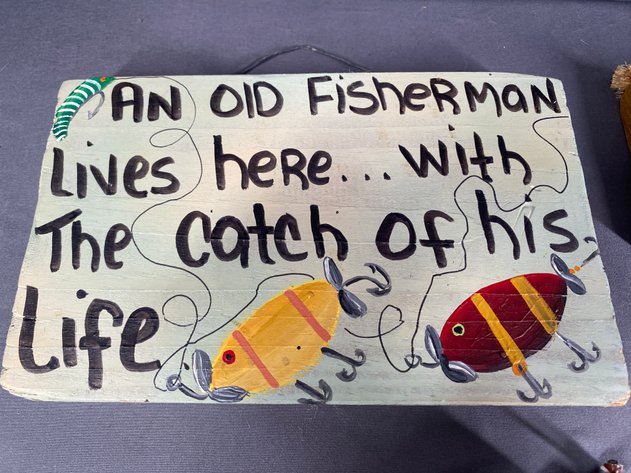 AN OlD FisherMAN
Lives here... with
The catch of his
Life